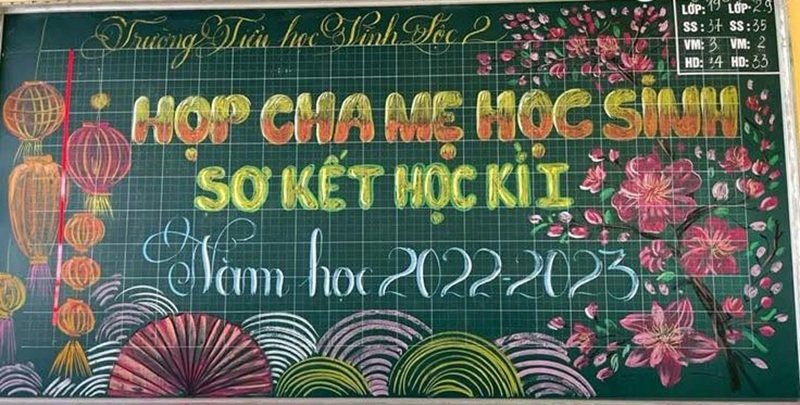 Trường Tiểu học Vĩnh Lộc 2
HỌP CHA MẸ HỌC SINH
SƠ KẾT HỌC KÌ I
Năm học 2022-2023
LỚP: LỚP: 2.9
SS: 37 SS: 35
VM: 3 VM: 2
HD: 34 HD: 33